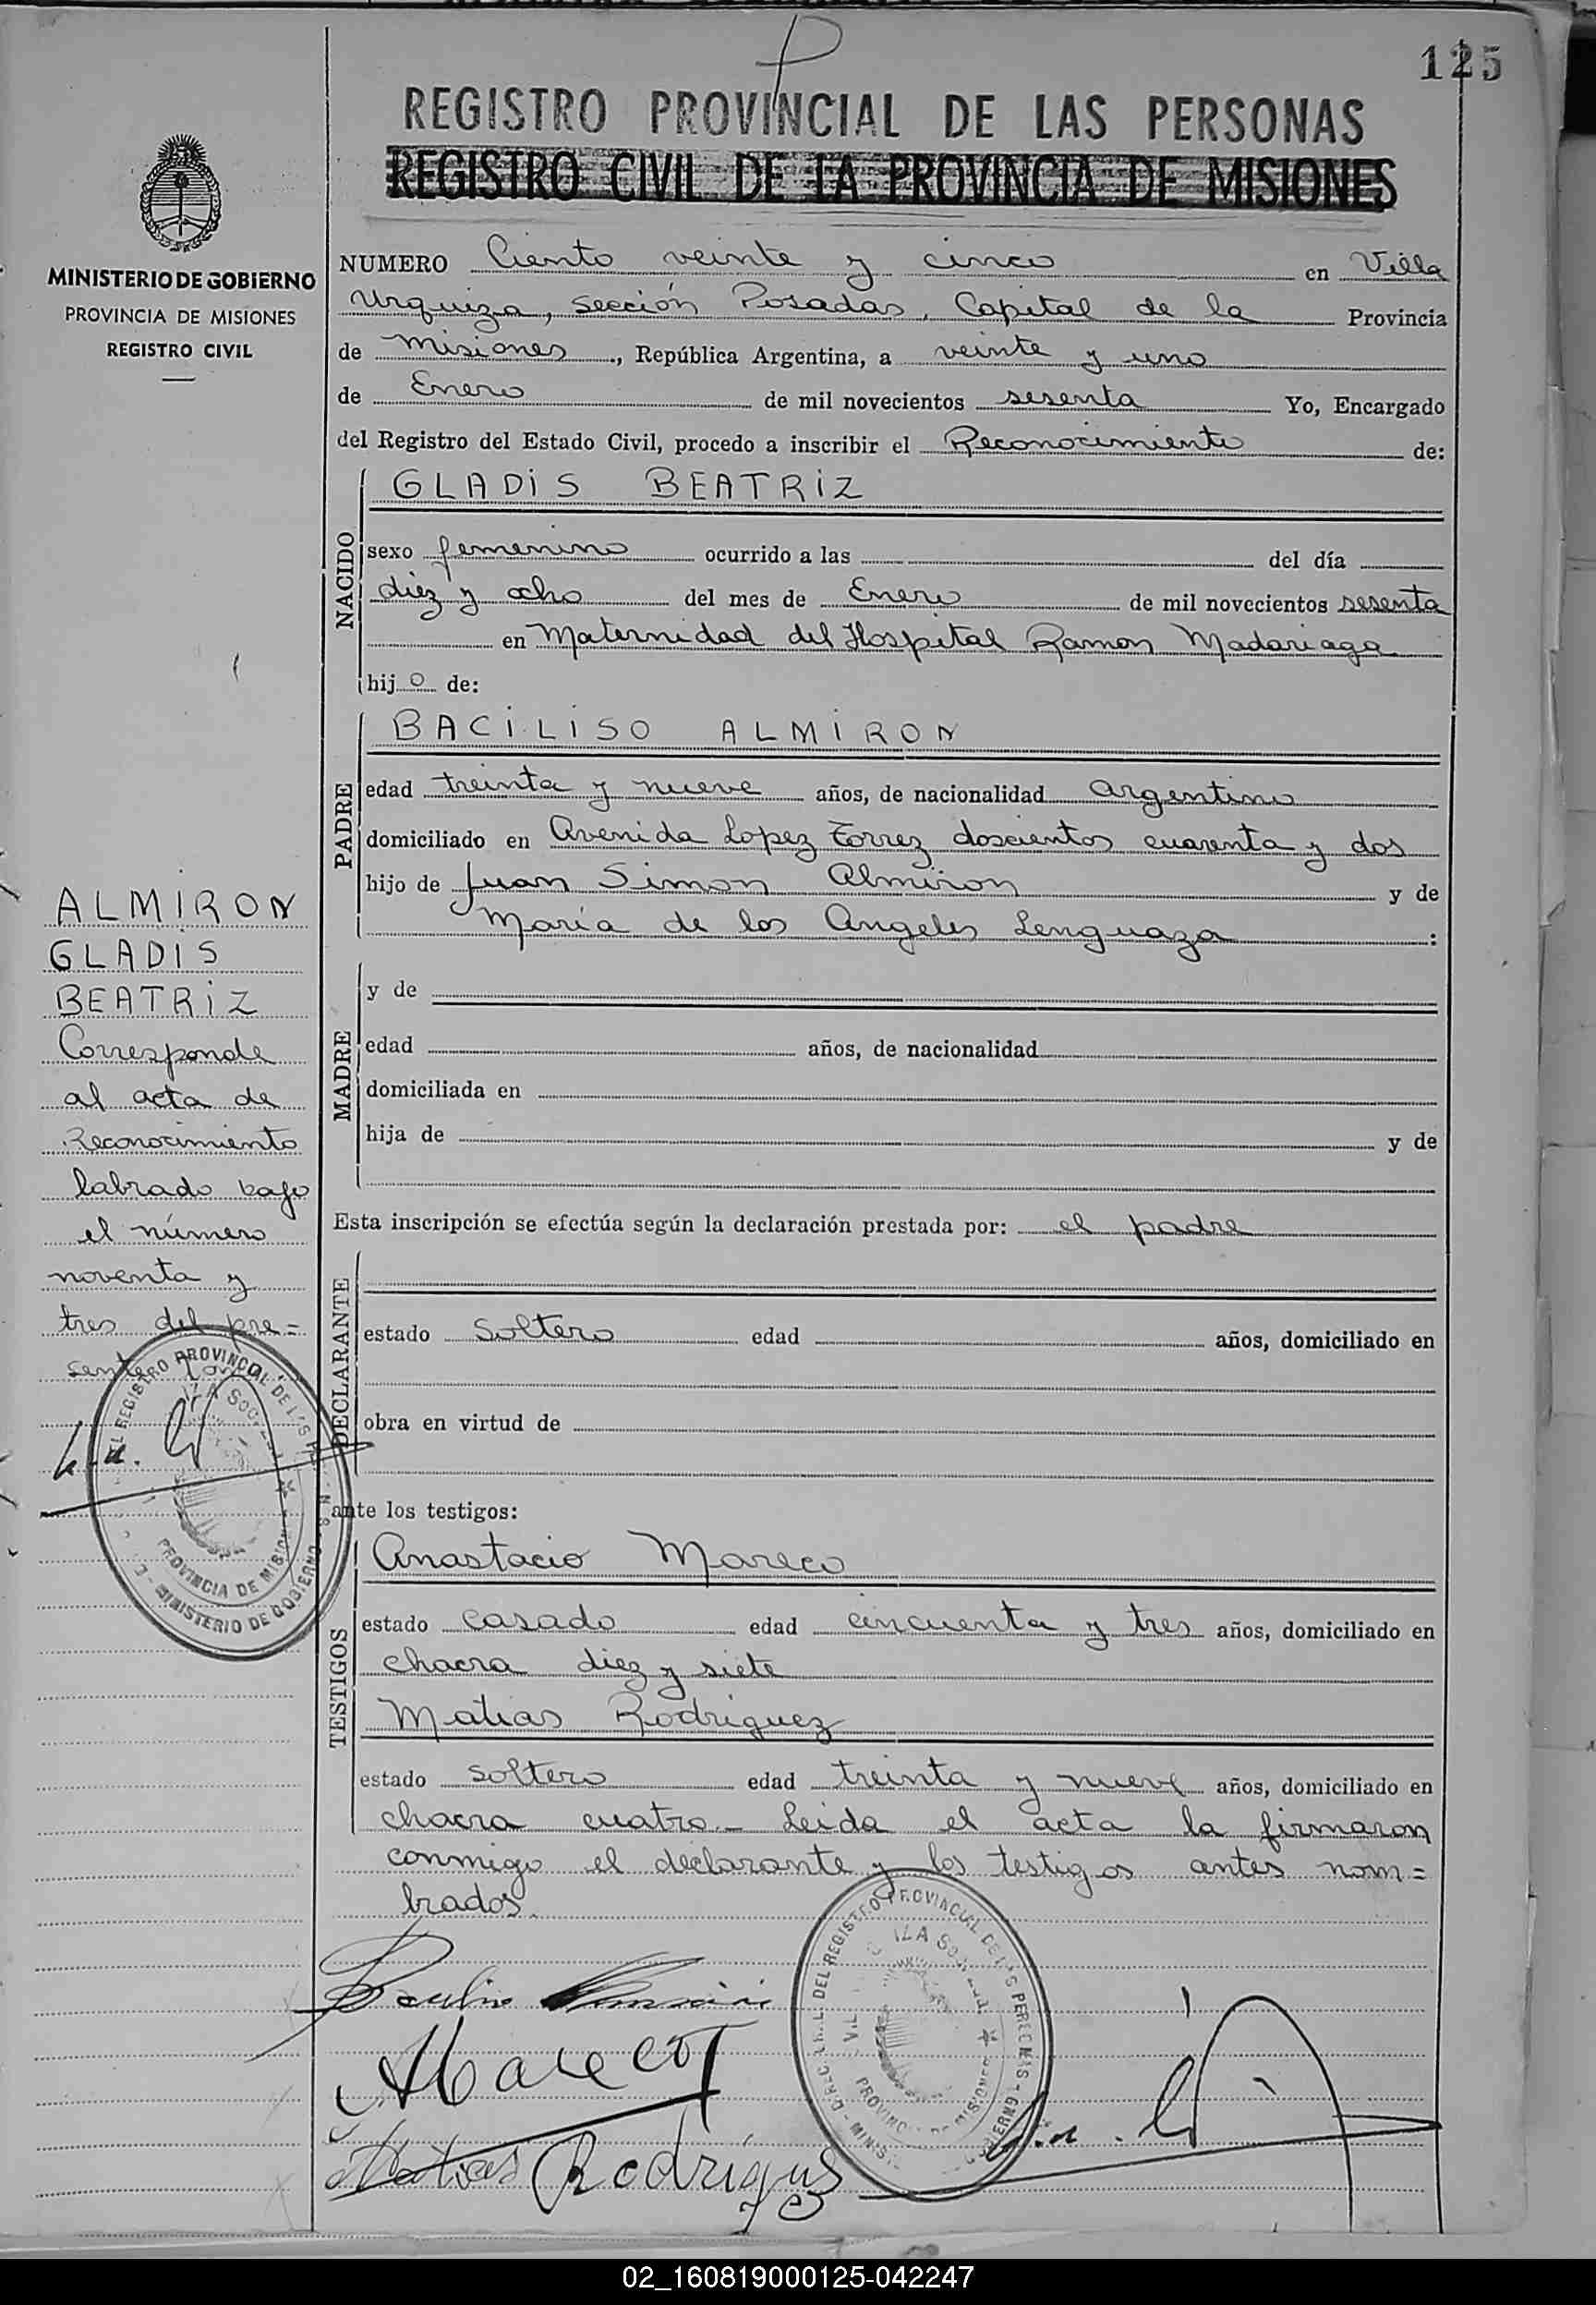 125
REGISTRO PROVINCIAL DE LAS PERSONAS
REGISTRO CIVIL DE LA PROVINCIA DE MISIONES
MINISTERIO DE GOBIERNO
PROVINCIA DE MISIONES
REGISTRO CIVIL
NUMERO Ciento veinte y cinco en Villa
Urquiza, Sección Posadas, Capital de la Provincia
de Misiones, República Argentina, a veinte y uno
de Enero de mil novecientos sesenta Yo, Encargado
del Registro del Estado Civil, procedo a inscribir el Reconocimiento de:
NACIDO
GLADIS BEATRIZ
sexo femenino ocurrido a las del día
diez y ocho del mes de Enero de mil novecientos sesenta
en Maternidad del Hospital Ramon Madariaga
hijo de:
PADRE
BACILISO ALMIRON
edad treinta y nueve años, de nacionalidad argentino
domiciliado en Avenida Lopez Torrez doscientos cuarenta y dos
hijo de Juan Simon Almiron y de
María de los Angeles Lenguaza :
MADRE
y de
edad años, de nacionalidad
domiciliada en
hija de y de
Esta inscripción se efectúa según la declaración prestada por: el padre
DECLARANTE
estado soltero edad años, domiciliado en
obra en virtud de
ante los testigos:
TESTIGOS
Anastacio Mareco
estado casado edad cincuenta y tres años, domiciliado en
chacra diez y siete
Matias Rodriguez
estado soltero edad treinta y nueve años, domiciliado en
chacra cuatro.- Leida el acta la firmaron
conmigo el declarante y los testigos antes nom=
brados.
Mareco
Matias Rodrigues
ALMIRON
GLADIS
BEATRIZ
Corresponde
al acta de
Reconocimiento
labrado bajo
el número
noventa y
tres del pre=
sente
REGISTRO PROVINCIAL DE
PROVINCIA DE MISION
MINISTERIO DE GOBIERNO
DEL REGISTRO PROVINCIAL DE
02_160819000125-042247